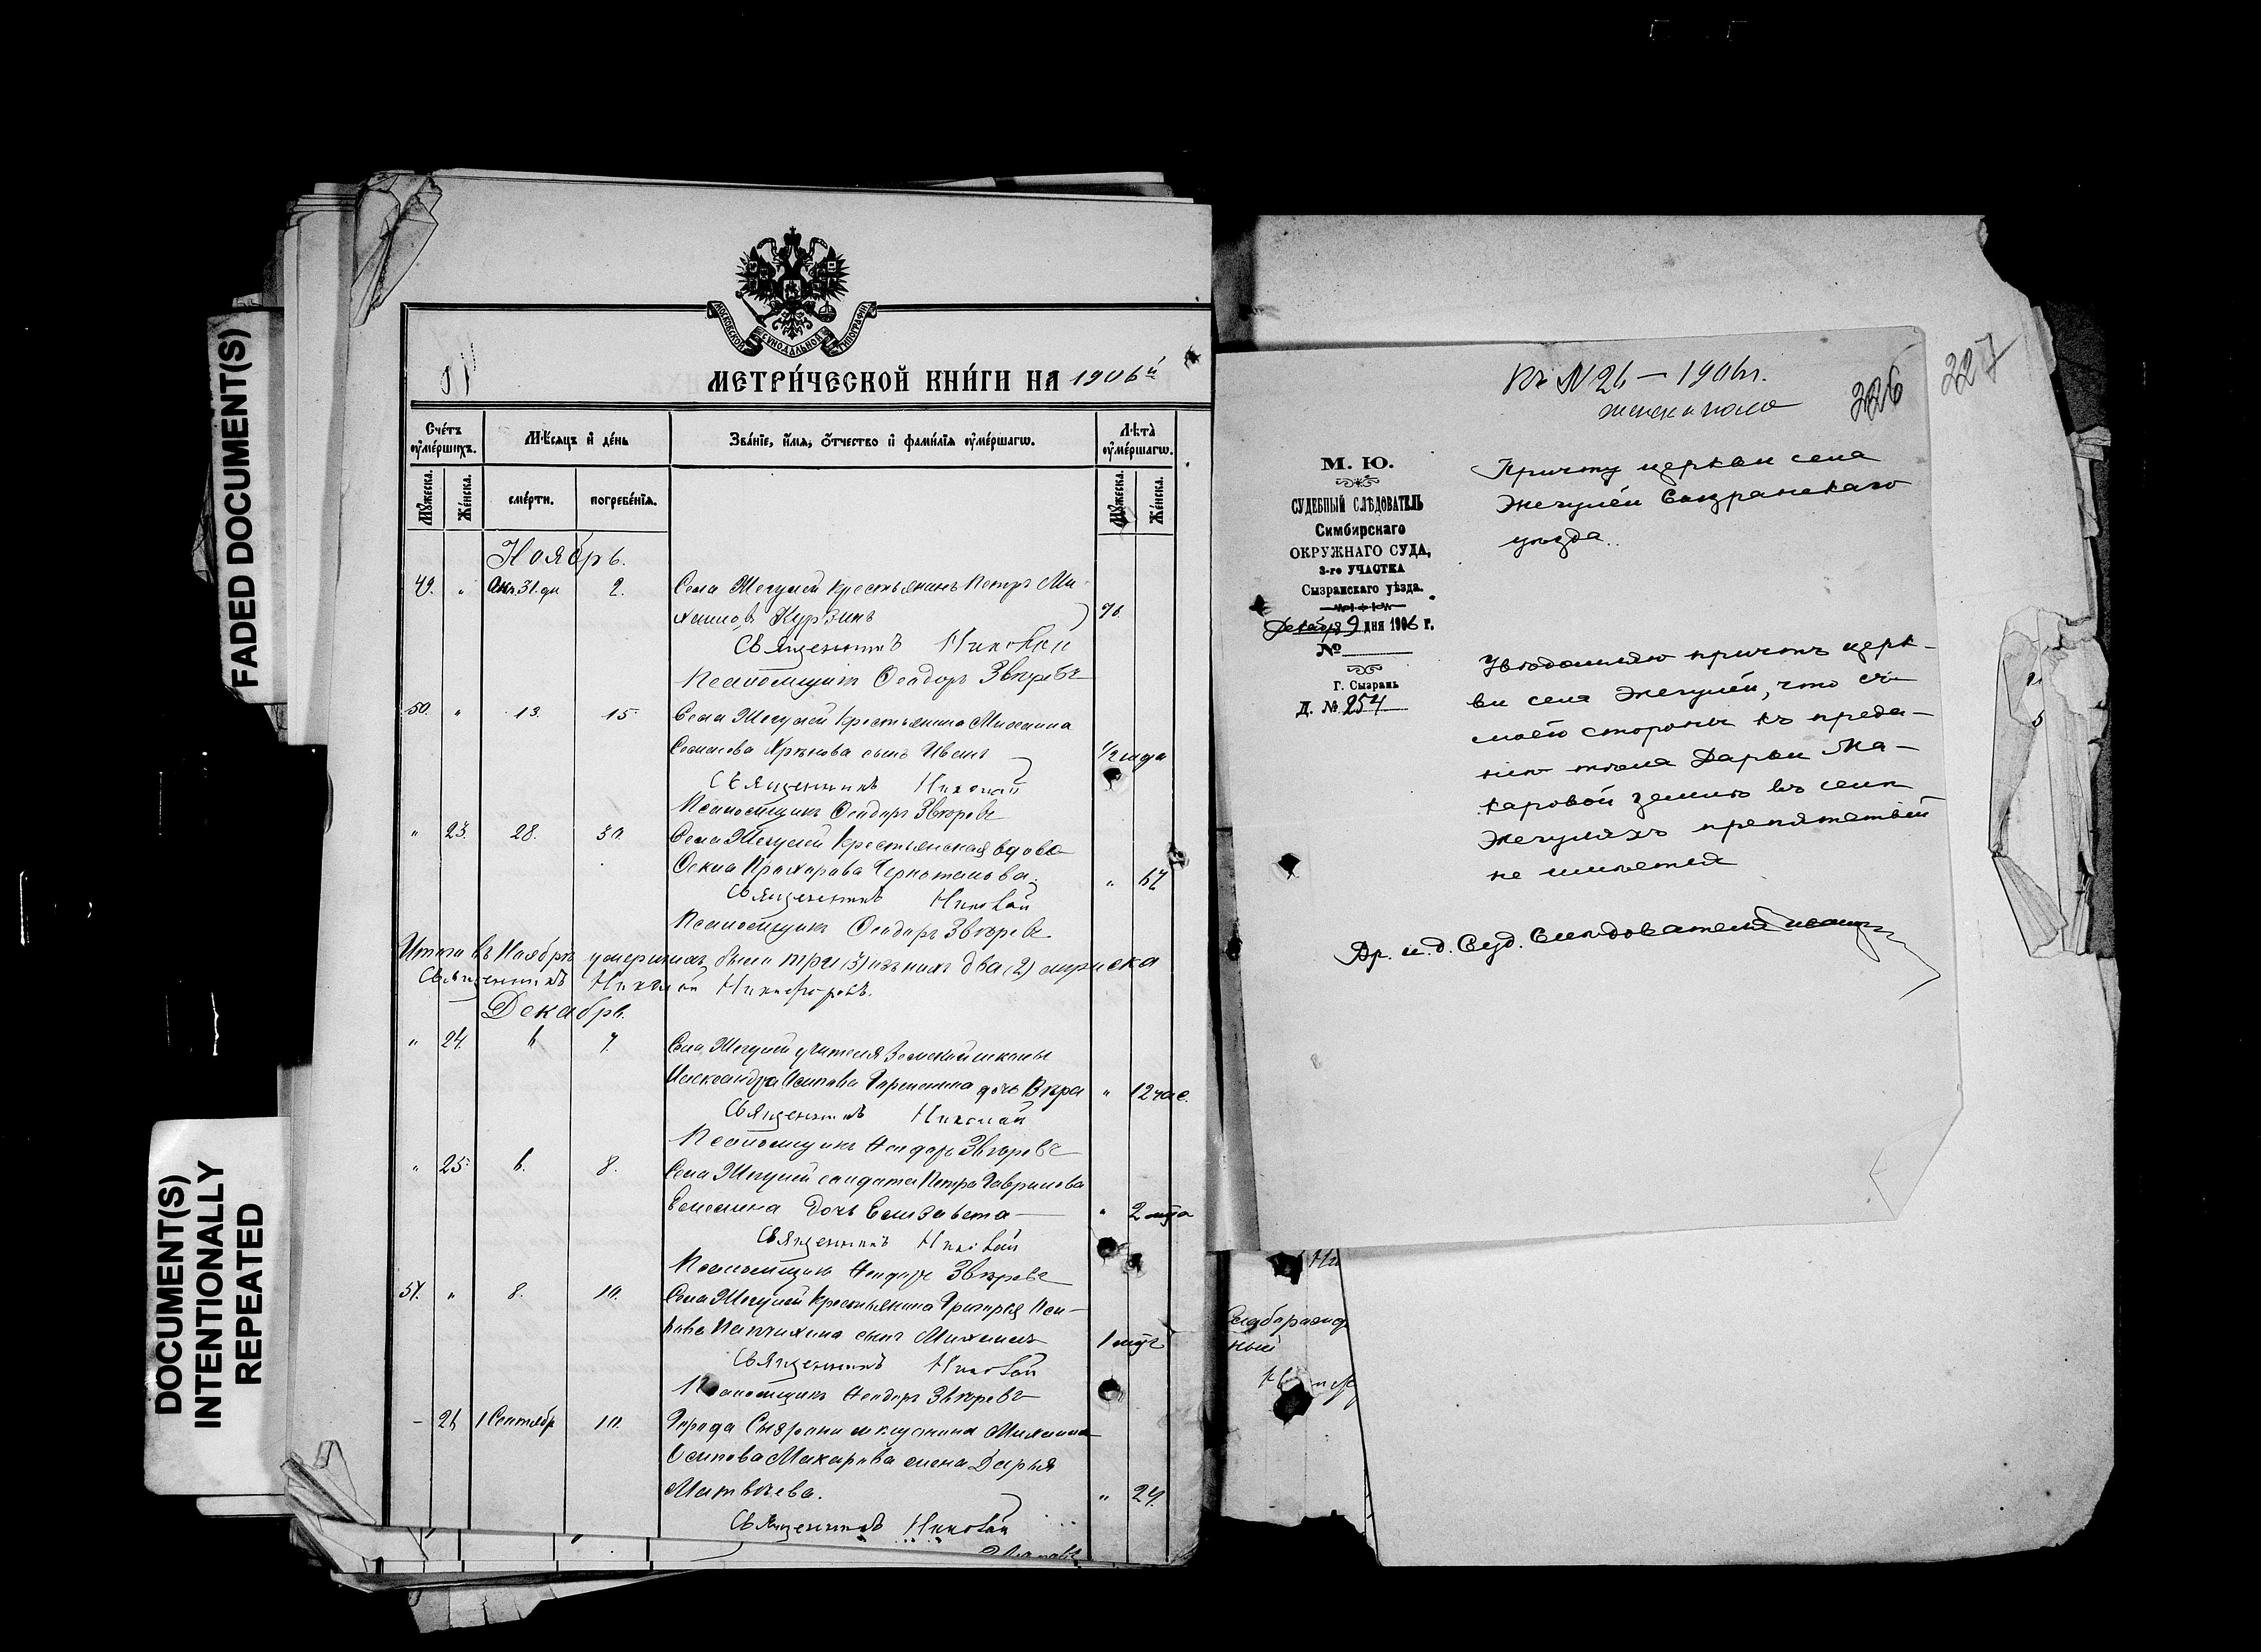 FADED DOCUMENT(S)
DOCUMENT(S)
INTENTIONALLY
REPEATED
МОСКОВСКОЙ СѴНОДАЛЬНОЙ ТИПОГРАФІИ
МЕТРИ́ЧЕСКОЙ КНИ́ГИ НА 1906й
Сче́тъ ᲂу҆ме́ршихъ.
Мѣ́сяцъ и҆ де́нь
Зва́нїе, и҆́мя, ѻ҆́тчество и҆ фами́лїя ᲂу҆ме́ршагѡ.
Лѣ́та ᲂу҆ме́ршагѡ.
Мꙋ́жеска.
Же́нска.
сме́рти.
погребе́нїя.
Мꙋ́жеска.
Же́нска.
Ноябрь.
49. " Окт. 31. дн 2. Села Жегулей крестьянинъ Петръ Ми-
хаиловъ Курзинъ 76.
Священникъ Николай
Псаломщикъ Ѳеодоръ Звѣревъ
50. " 13. 15. Села Жегулей крестьянина Михаила
Семенова сынъ Иванъ 1/2 года
Священникъ Николай
Псаломщикъ Ѳеодоръ Звѣревъ
" 23. 28. 30. Села Жегулей крестьянская вдова
Прохорова " 67
Священникъ Николай
Псаломщикъ Ѳеодоръ Звѣревъ.
Итого въ Ноябрѣ умершихъ было три (3) изъ нихъ два (2) мужеска
Священникъ Николай Никифоровъ.
Декабрь.
" 24. 6 7. Села Жегулей учителя Земской школы
Александра Осипова дочь Вѣра " 12 час.
Священникъ Николай
Псаломщикъ Ѳеодоръ Звѣревъ
" 25. 6. 8. Села Жегулей солдата Петра Гаврилова
дочь Елизавета " 2 года
Священникъ Николай
Псаломщикъ Ѳеодоръ Звѣревъ
51. " 8. 10. Села Жегулей крестьянина Григорья
сынъ Михаилъ 1 годъ
Священникъ Николай
Псаломщикъ Ѳеодоръ Звѣревъ
– 26 1 Сентябр 10. Города Сызрани мѣщанина Михаила
Осипова Макарова жена Дарья
Матвѣева. " 24.
Священникъ Николай
Къ № 26 – 1906 г.
женск. пола
326
327
М. Ю.
СУДЕБНЫЙ СЛѢДОВАТЕЛЬ
Симбирскаго
ОКРУЖНАГО СУДА,
3-го УЧАСТКА
Сызранскаго уѣзда.
Декабря 9 дня 1906 г.
№
Г. Сызрань
Д. № 254
Причту церкви села
Жегулей Сызранскаго
уѣзда.
Увѣдомляю причтъ церк-
ви села Жегулей, что съ
моей стороны къ преда-
нію тѣла Дарьи Ма-
каровой землѣ въ селѣ
Жегуляхъ препятствій
не имѣется
Вр. и. д. Суд. Слѣдователя